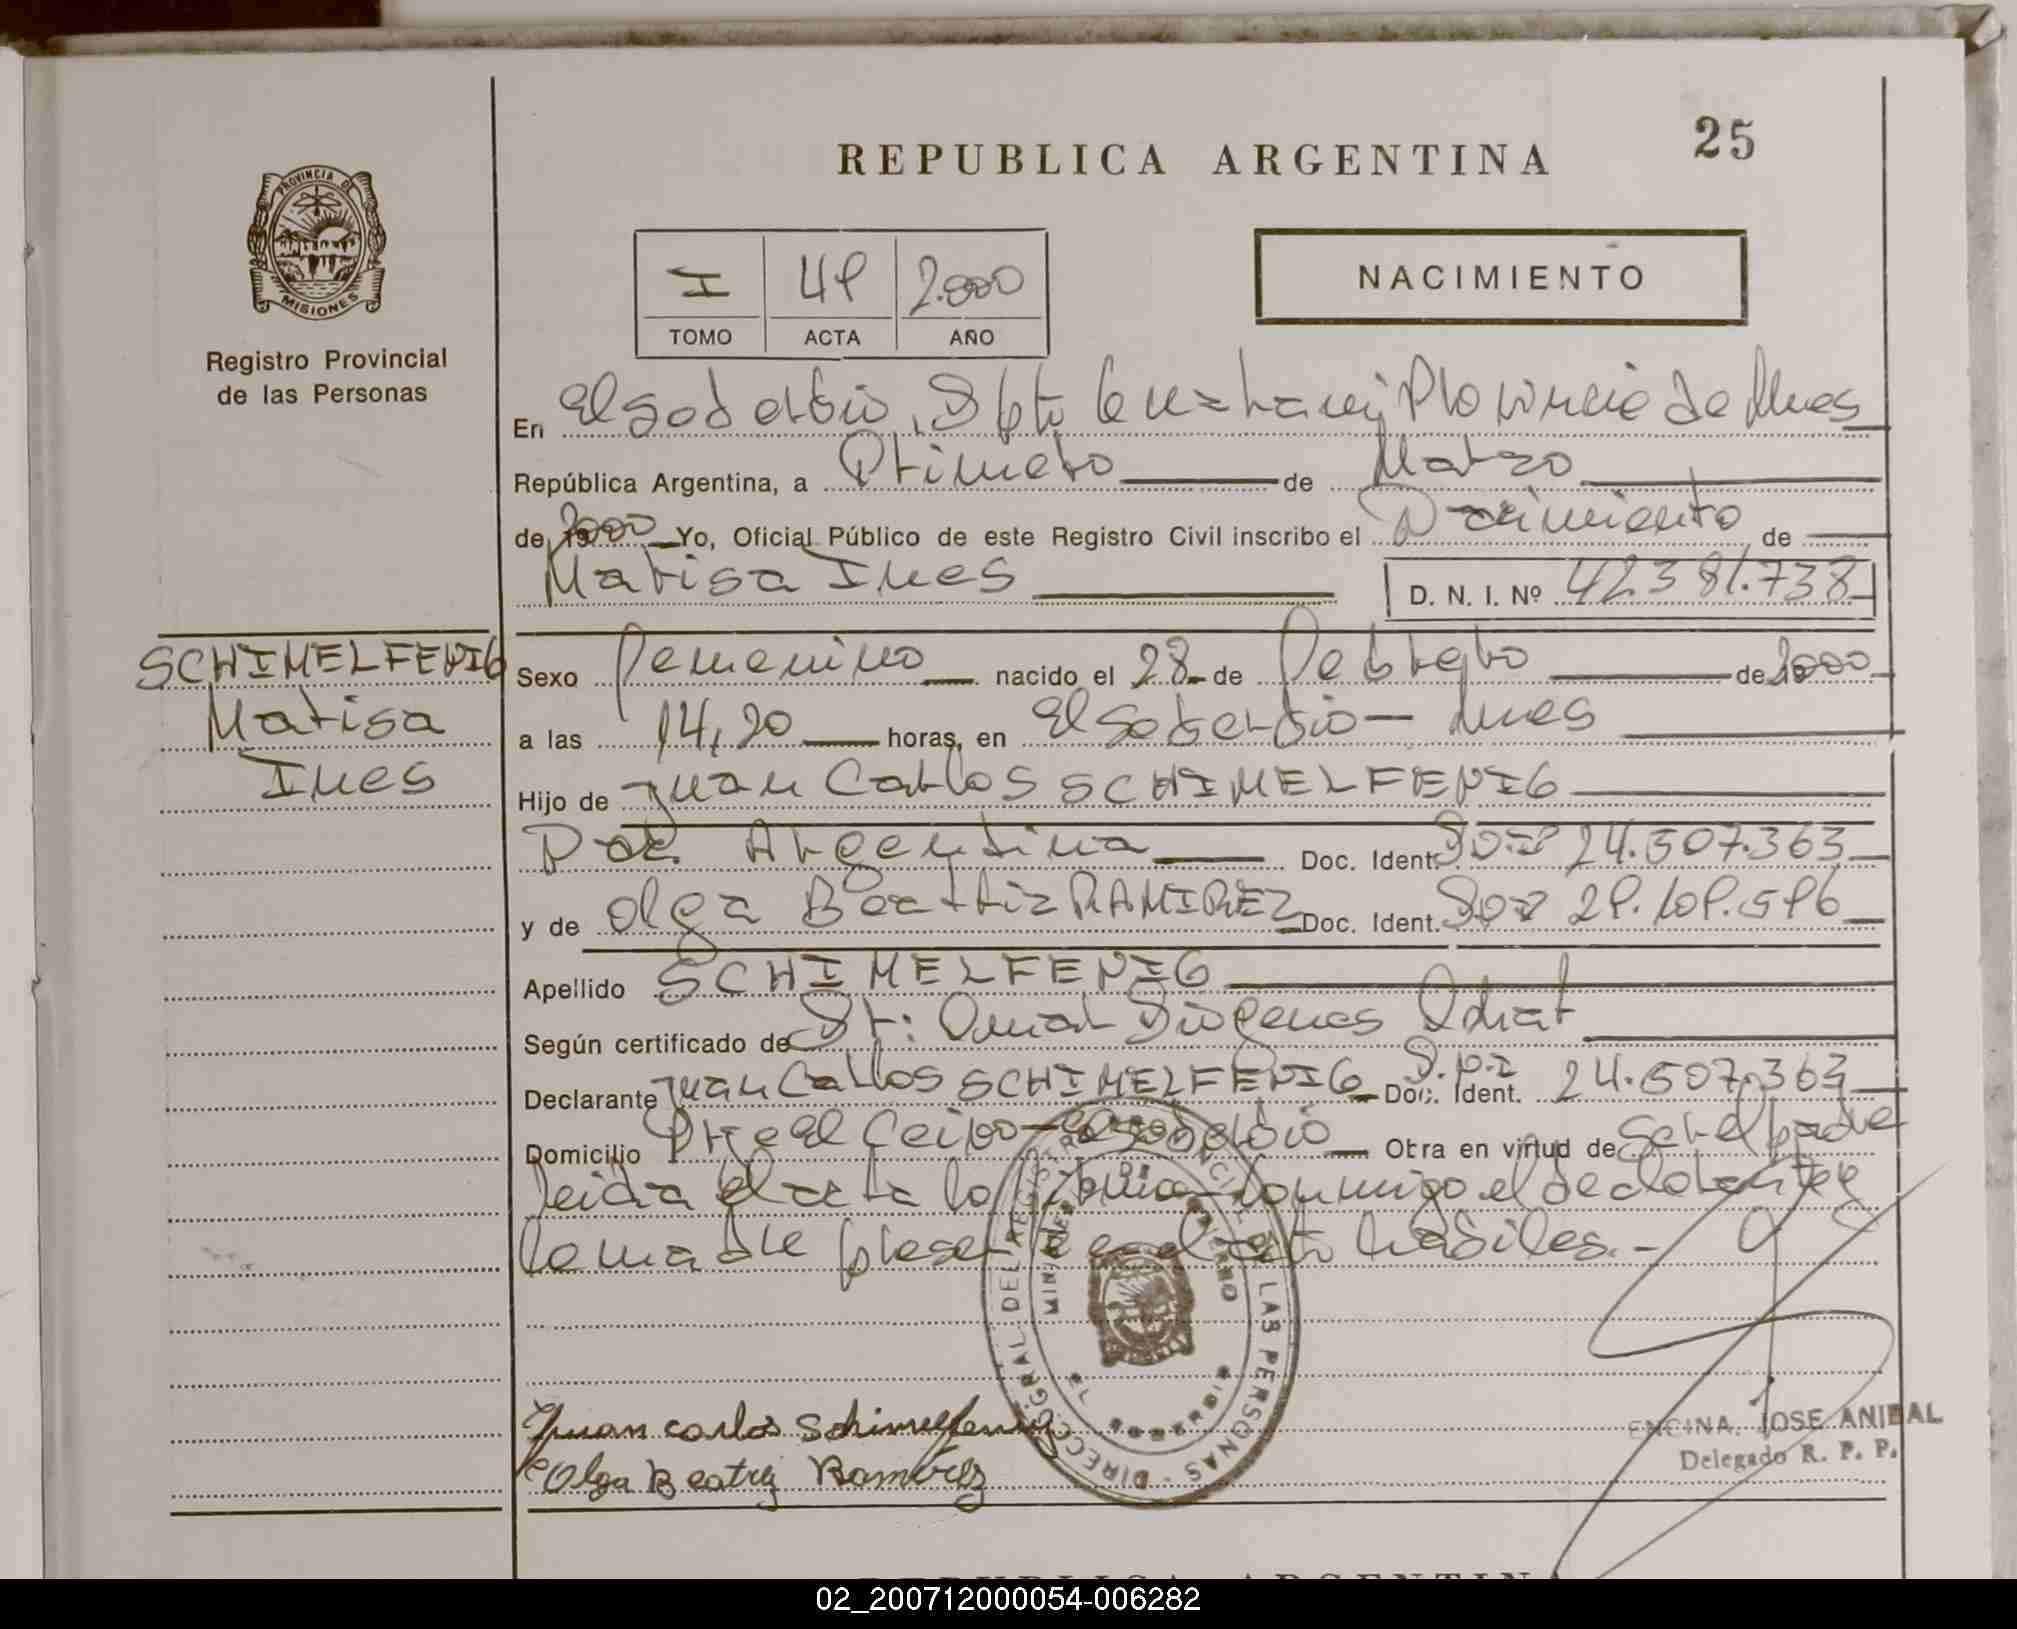 25
REPUBLICA ARGENTINA
PROVINCIA DE
MISIONES
Registro Provincial
de las Personas
I 49 2.000
TOMO ACTA AÑO
NACIMIENTO
En El Soberbio, Dpto Guarani, Provincia de Mnes
República Argentina, a Primero de Marzo
de 2000 Yo, Oficial Público de este Registro Civil inscribo el Nacimiento de
Marisa Ines D. N. I. Nº 42.381.738
SCHIMELFENIG
Marisa
Ines
Sexo Femenino nacido el 28 de Febrero de 2000
a las 14,20 horas, en El Soberbio - Mnes
Hijo de Juan Carlos SCHIMELFENIG
Nac. Argentina Doc. Ident. D.N.I 24.507.363
y de Olga Beatriz RAMIREZ Doc. Ident. D.N.I 29.109.596
Apellido SCHIMELFENIG
Según certificado de Dr: Omar Diogenes
Declarante Juan Carlos SCHIMELFENIG Doc. Ident. D.N.I 24.507.363
Domicilio Pje El Ceibo - El Soberbio Obra en virtud de Ser el padre
leida el acta la firma conmigo el declarante y
la madre presente en el acto habiles.-
DIRECC. GRAL. DEL REGISTRO PROVINCIAL DE LAS PERSONAS
MINISTERIO DE GOBIERNO
MISIONES
Juan carlos Schimelfenig
Olga Beatriz Ramirez
ENCINA, JOSE ANIBAL
Delegado R. P. P.
REPUBLICA ARGENTINA
02_200712000054-006282